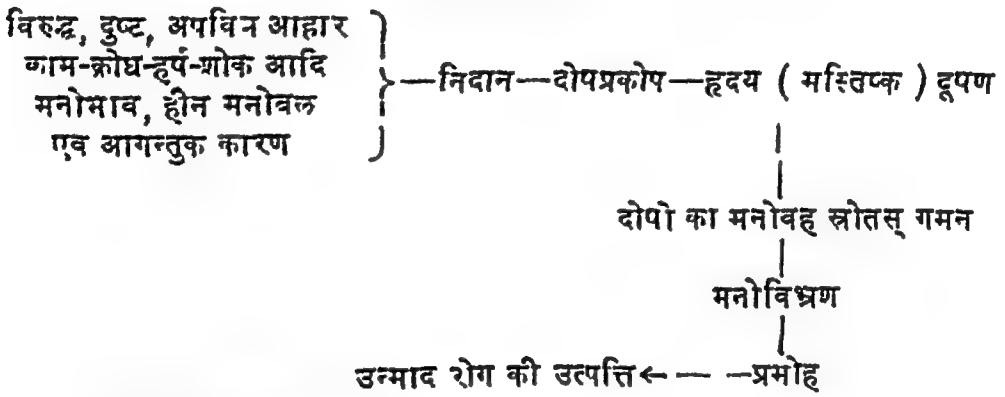 विरुद्ध, दुष्ट, अपविन आहार
काम-क्रोध-हर्प-शोक आदि
मनोभाव, हीन मनोवल
एव आगन्तुक कारण
—निदान—दोपप्रकोप—हृदय ( मस्तिप्क ) दूपण
दोपो का मनोवह स्रोतस् गमन
मनोविभ्रण
उन्माद रोग की उत्पत्ति←— —प्रमोह